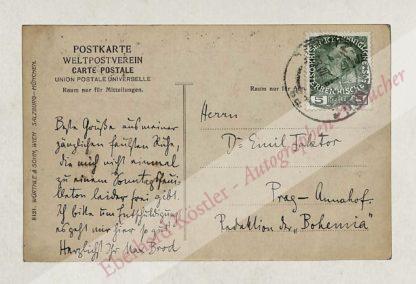 POSTKARTE
WELTPOSTVEREIN
CARTE POSTALE
UNION POSTALE UNIVERSELLE
Raum nur für Mitteilungen.
Raum nur für
Beste Grüße aus meiner
gänzlichen faulsten Ruhe,
die mich nicht einmal
zu einem
leider frei gibt.
Ich bitte um Entschuldigung
es geht mir hier so gut
Herzlichst Ihr Max Brod
Herrn
Dr Emil Faktor
Prag - Annahof.
Redaktion der „Bohemia"
5
WÜRTHLE & SOHN, WIEN SALZBURG-MÜNCHEN.
Eberhard Köstler - Autographen & Bücher